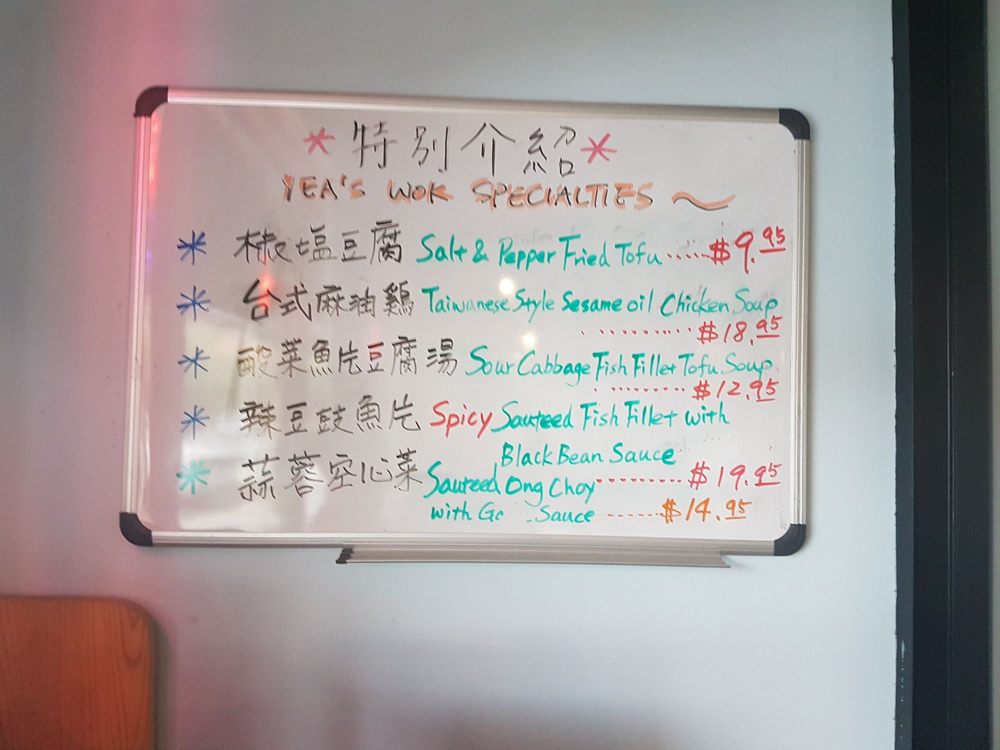 * 特別介紹 *
YEA'S WOK SPECIALTIES ~
* 椒塩豆腐 Salt & Pepper Fried Tofu ..... $9.95
* 台式麻油鷄 Taiwanese Style Sesame oil Chicken Soup
.......... $18.95
* 酸菜魚片豆腐湯 Sour Cabbage Fish Fillet Tofu Soup
.......... $12.95
* 辣豆豉魚片 Spicy Sauteed Fish Fillet with
Black Bean Sauce
......... $19.95
* 蒜蓉空心菜 Sauteed Ong Choy
with Sauce ...... $14.95